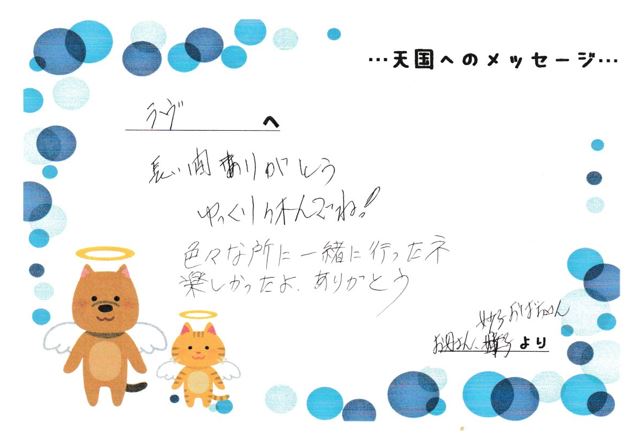 …天国へのメッセージ…
ラヴ へ
長い間ありがとう
ゆっくり休んでね!
色々な所に一緒に行ったネ
楽しかったよ、ありがとう
おばあちゃん
お母さん、より